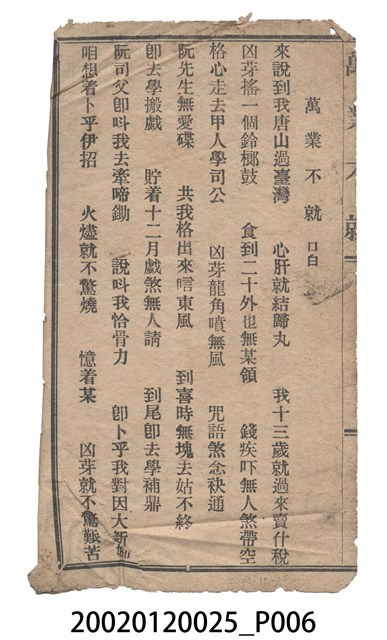 萬業不就 口白
來說到我唐山過臺灣 心肝就結歸丸 我十三歲就過來賣什稅
凶芽搖一個鈴榔鼓 食到二十外也無某領 錢疾吓無人煞帶空
格心走去甲人學司公 凶芽龍角噴無風 咒語煞念袂通
阮先生無愛碟 共我格出來唁東風 到喜時無塊去姑不終
卽去學搬戲 貯着十二月戲煞無人請 到尾卽去學補鼎
阮司父卽呌我去牽啼鋤 說呌我恰骨力 卽卜乎我對因大新
咱想着卜乎伊招 火燼就不驚燒 憶着某 凶芽就不驚艱苦
萬業不就
20020120025_P006